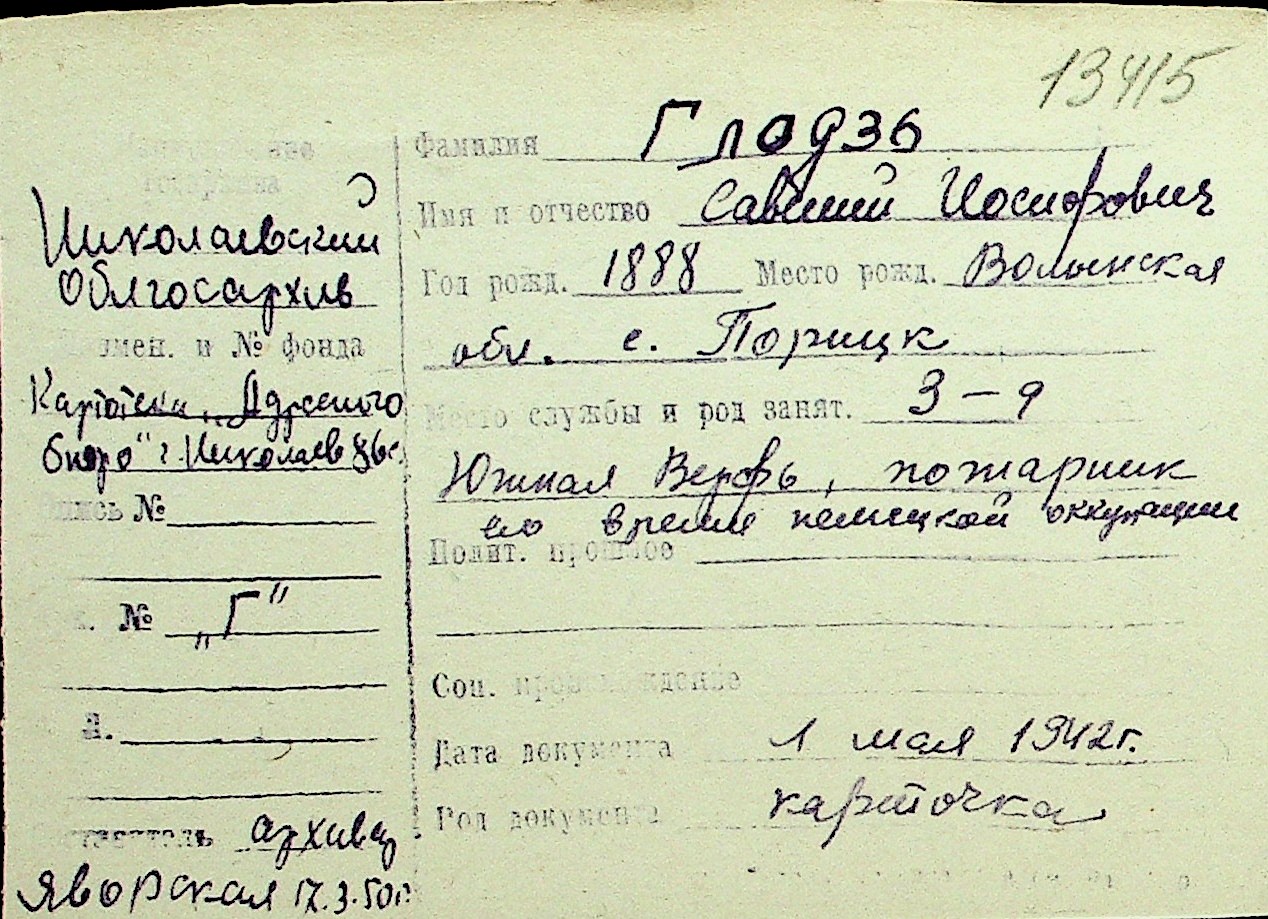 13415
Николаевский
Облгосархив
имен. и № фонда
Картотека „Адресного
бюро" г. Николаев
опись №
№ „Г"
л.
архивар
Яворская 17.3.50г.
Фамилия Глодзь
Имя и отчество Савелий Иосифович
Год рожд. 1888 Место рожд. Волынская
обл. с. Порицк
Место службы и род занят. З-д
Южная Верфь, пожарник
во время немецкой оккупации
Полит. прошлое
Соц. происхождение
Дата документа 1 мая 1942г.
Род документа карточка